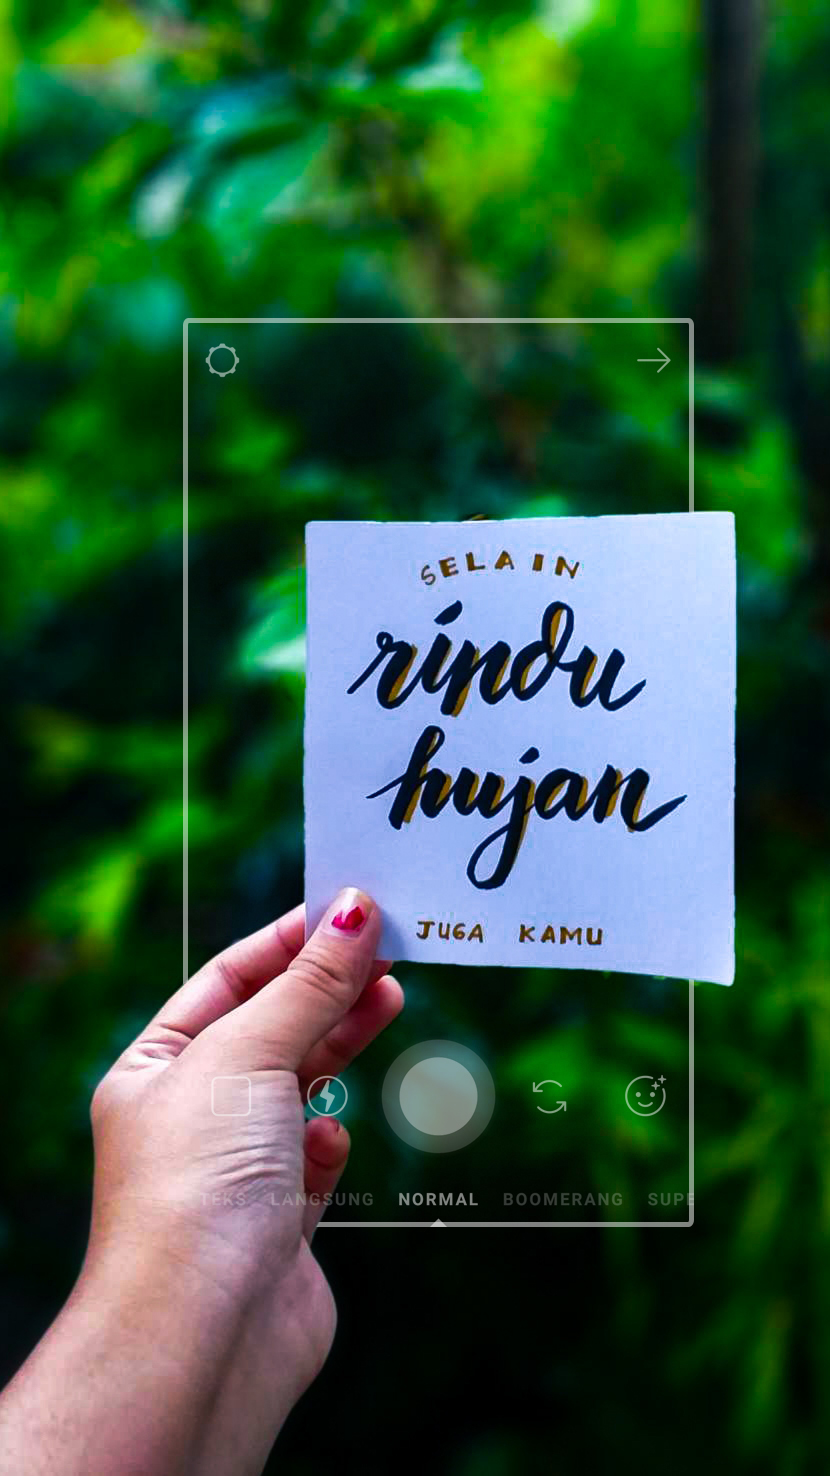 SELAIN
rindu
hujan
JUGA KAMU
TEKS LANGSUNG NORMAL BOOMERANG SUPE